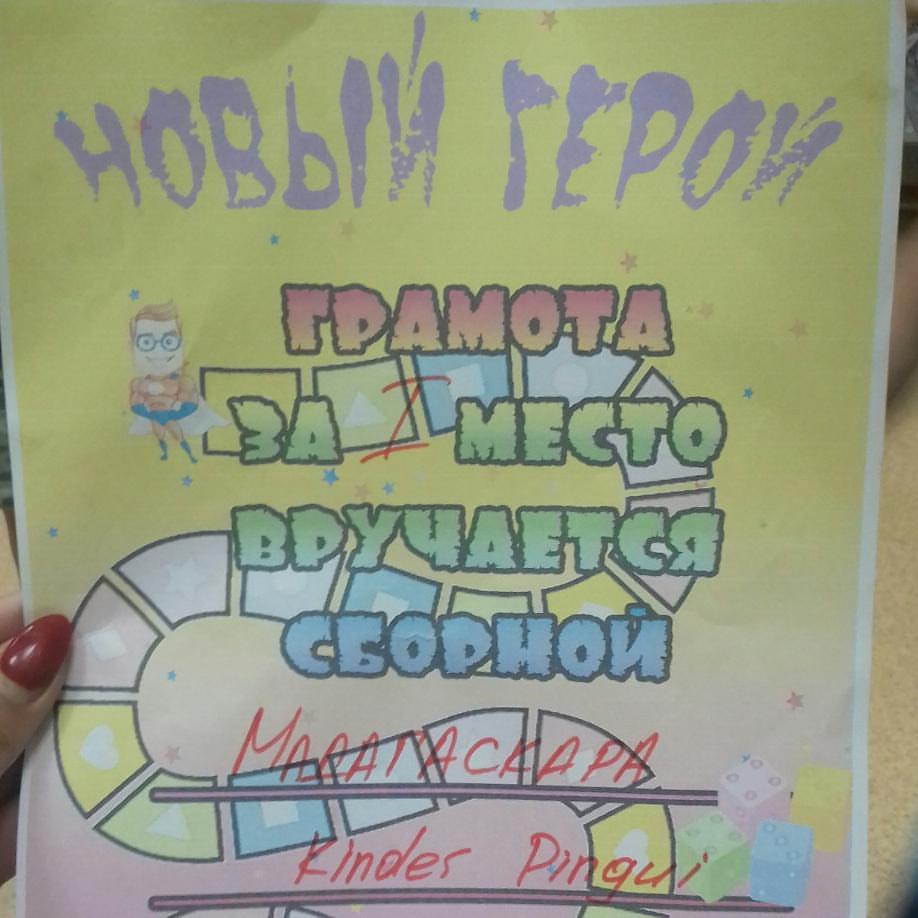 НОВЫЙ ГЕРОЙ
ГРАМОТА
ЗА I МЕСТО
ВРУЧАЕТСЯ
СБОРНОЙ
МАДАГАСКАРА
Kinder Pingui